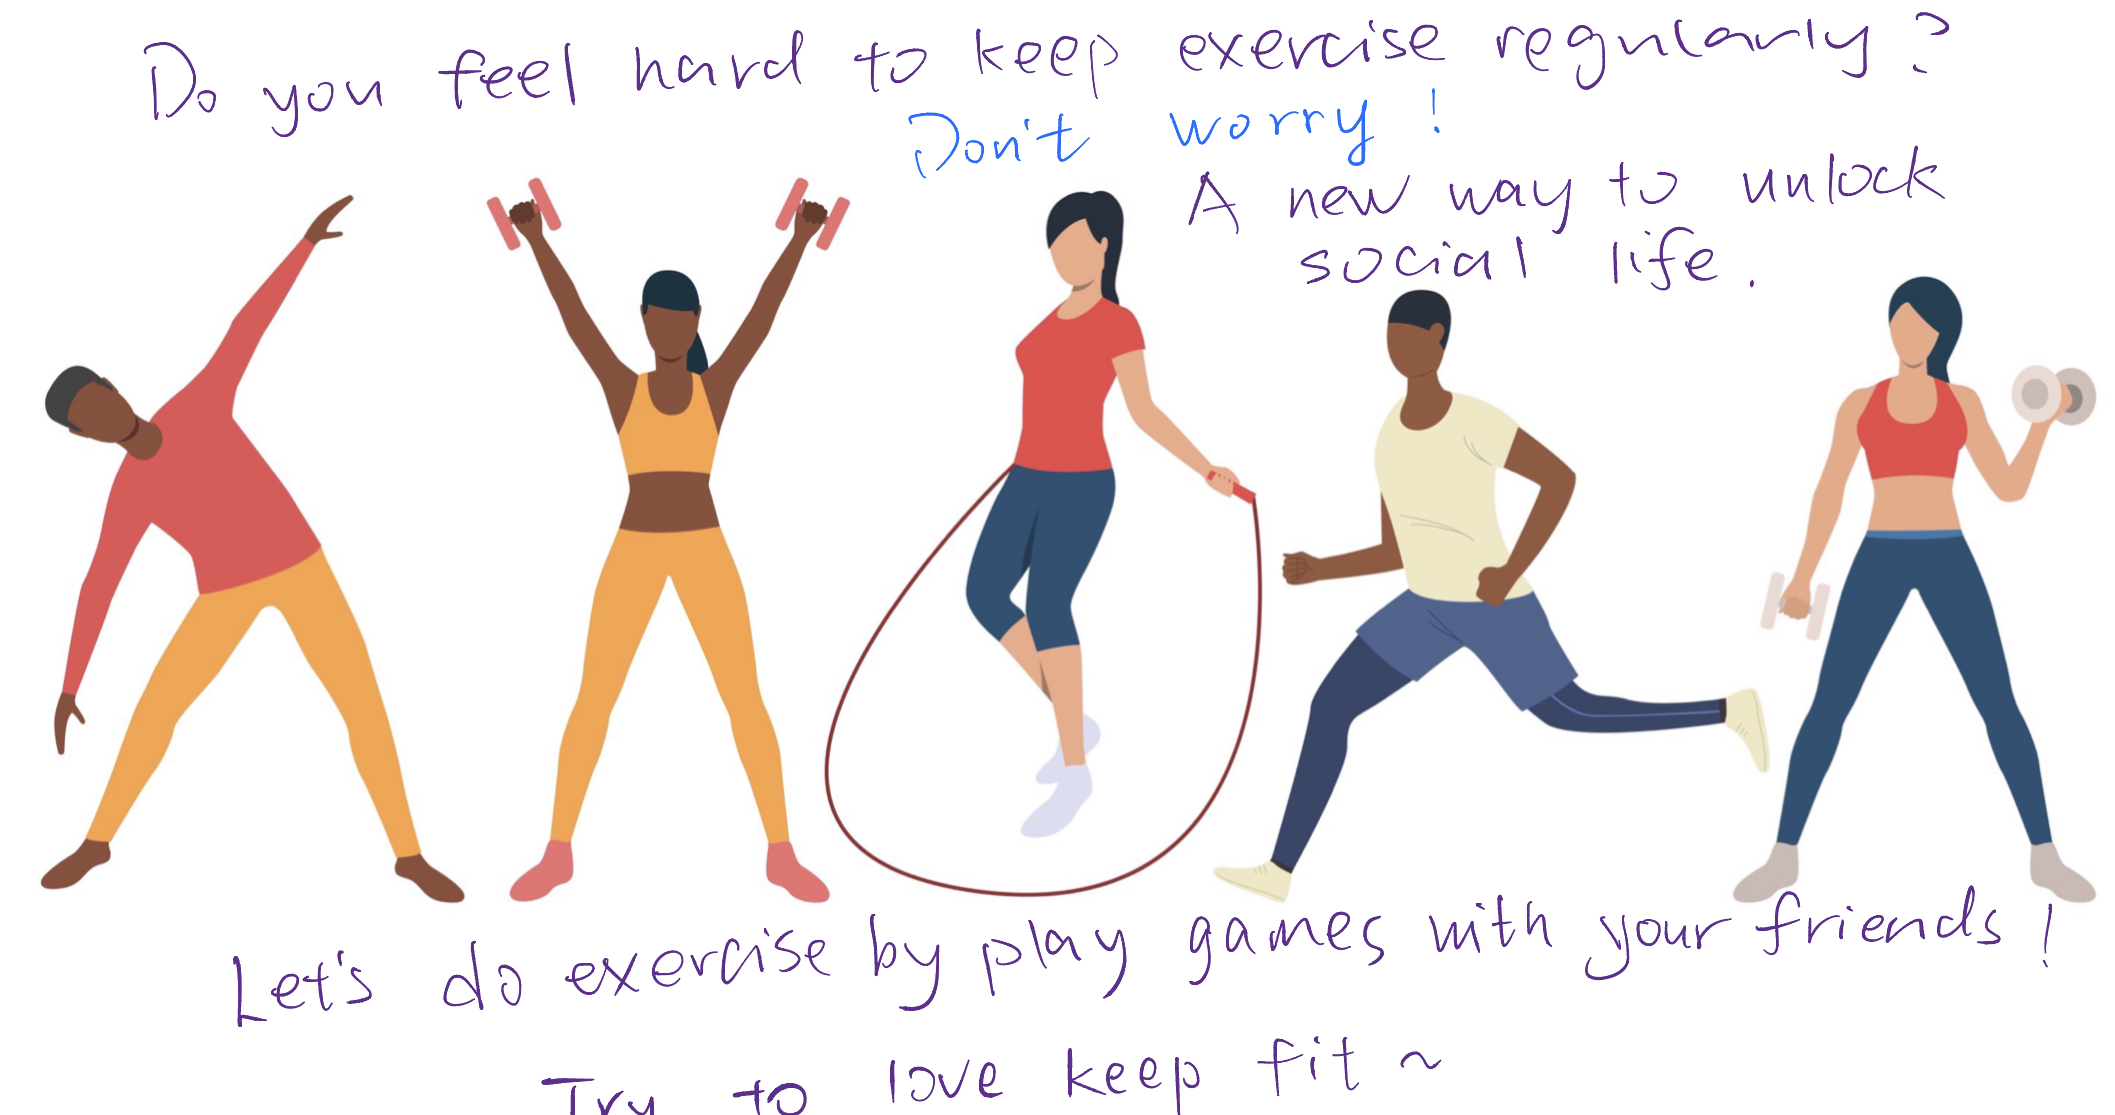 Do you feel hard to keep exercise regularly?
Don't worry!
A new way to unlock
social life.
Let's do exercise by play games with your friends!
Try to love keep fit ~